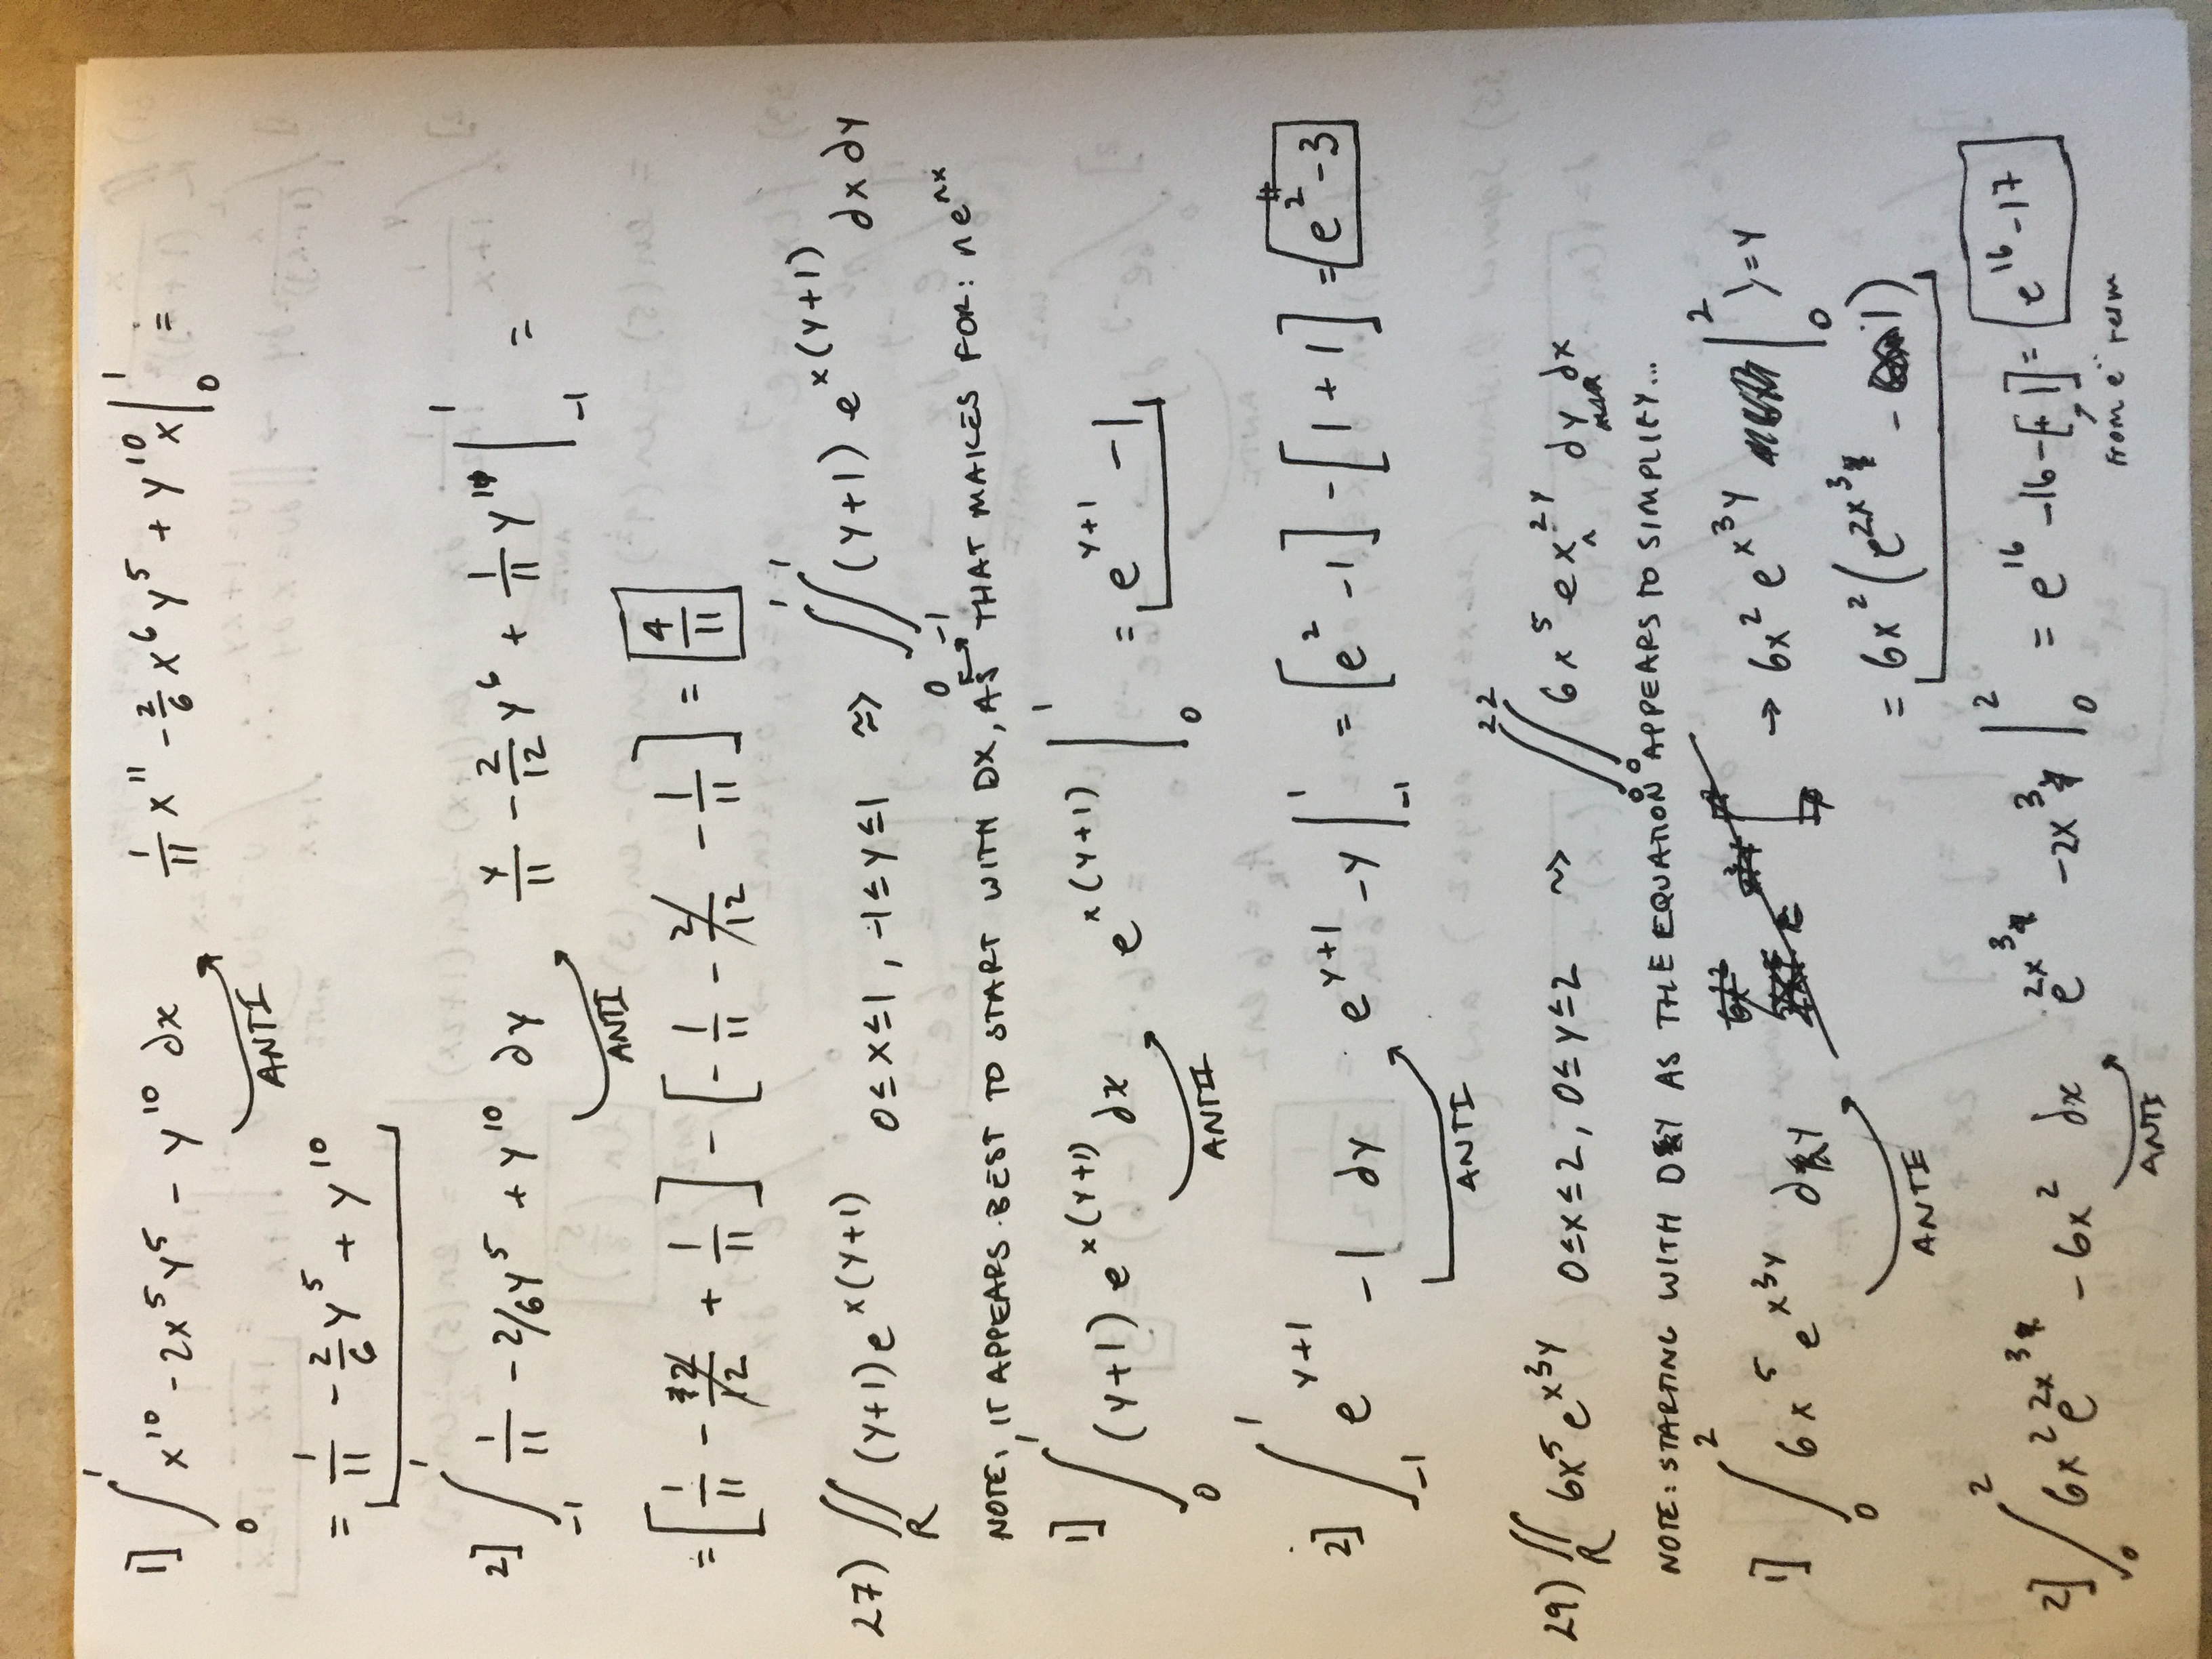 1] ∫₀¹ x¹⁰ - 2x⁵y⁵ - y¹⁰ dx   1/11 x¹¹ - 2/6 x⁶ y⁵ + y¹⁰x |₀¹ =
ANTI
= 1/11 - 2/6 y⁵ + y¹⁰
2] ∫₋₁¹ 1/11 - 2/6y⁵ + y¹⁰ dy   y/11 - 2/12 y⁶ + 1/11 y¹¹ |₋₁¹ =
ANTI
= [1/11 - 2/12 + 1/11] - [-1/11 - 2/12 - 1/11] = 4/11
27) ∬_R (y+1)e^x(y+1)   0≤x≤1, -1≤y≤1 ⇝ ∫₀¹∫₋₁¹ (y+1) e^x(y+1) dx dy
NOTE: IT APPEARS BEST TO START WITH DX, AS THAT MAKES FOR: ne^nx
1] ∫₀¹ (y+1) e^x(y+1) dx   e^x(y+1) |₀¹ = e^y+1 - 1
ANTI
2] ∫₋₁¹ e^y+1 - 1 dy   e^y+1 - y |₋₁¹ = [e² - 1] - [1 + 1] = e² - 3
ANTI
29) ∬_R 6x⁵e^x³y   0≤x≤2, 0≤y≤2 ⇝ ∫₀²∫₀² 6x⁵ ex^2y dy dx
NOTE: STARTING WITH DY AS THE EQUATION APPEARS TO SIMPLIFY...
1] ∫₀² 6x⁵ e^x³y dy → 6x² e^x³y |₀² ⟩=y
ANTI
= 6x²(e^2x³ - 1)
2] ∫₀² 6x² e^2x³ - 6x² dx   e^2x³ - 2x³ |₀² = e¹⁶ - 16 - [+1] = e¹⁶ - 17
ANTI
from e term